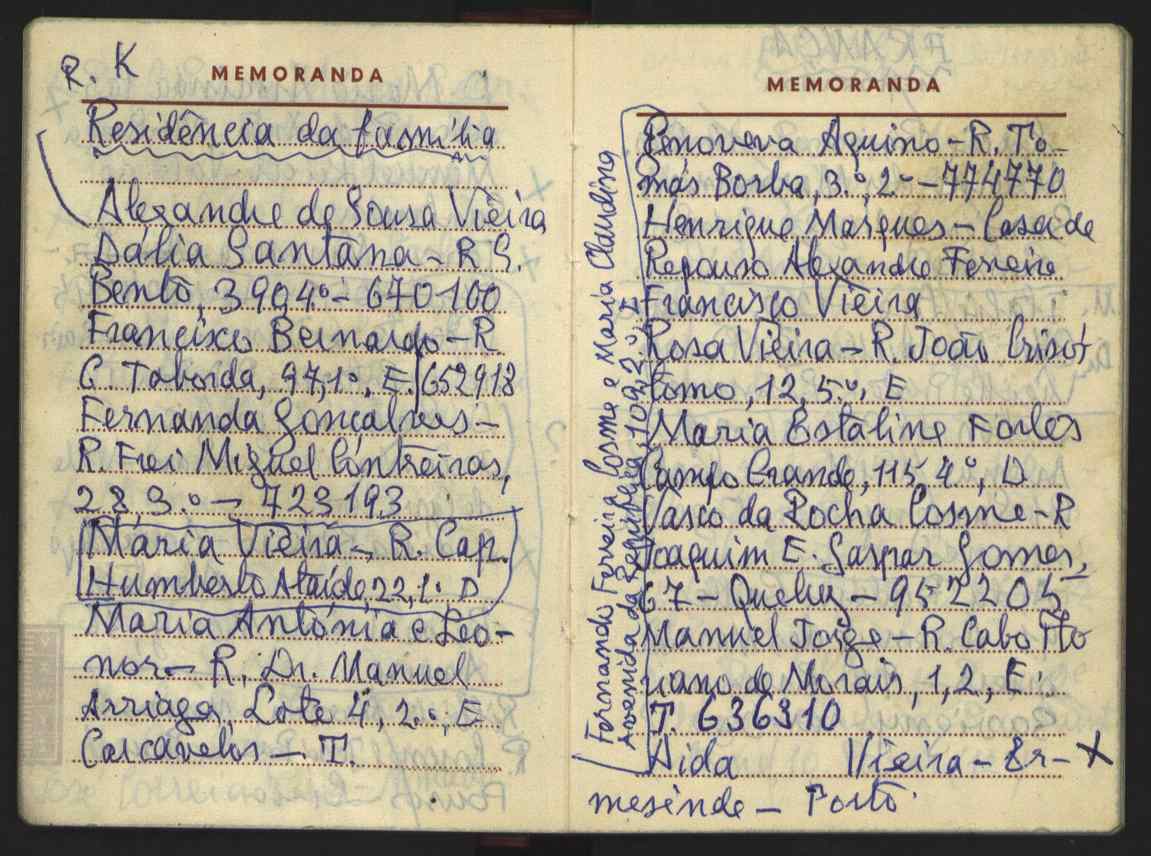 R. K
MEMORANDA
Residência da família
Alexandre de Sousa Vieira
Dália Santana - R. S.
Bento, 390, 4º - 670100
Francisco Bernardo - R.
C. Taborda, 97, 1º, E. 652918
Fernanda Gonçalves -
R. Frei Miguel Contreiras,
28 3.º - 723193
Maria Vieira - R. Cap.
Humberto Ataíde, 22, 1º D
Maria Antónia e Leo-
nor - R. Dr. Manuel
Arriaga, Lote 4, 2.º, E.
Carcavelos - T.
MEMORANDA
Fernando Ferreira Cosme e Maria Claudina
Avenida da República, 109, 2º, E
Genoveva Aquino - R. To-
más Borba, 3.º, 2º - 774770
Henrique Marques - Casa de
Repouso Alexandre Ferreira
Francisco Vieira
Rosa Vieira - R. João Crisós
tomo, 12, 5º, E
Maria Estaline Fortes
Campo Grande, 115, 4º, D
Vasco da Rocha Cosme - R
Joaquim E. Gaspar Gomes,
67 - Queluz - 952205
Manuel Jorge - R. Cabo Flo
riano de Morais, 1, 2, E.
T. 636310
Aida Vieira - Er- X
mesinde - Porto